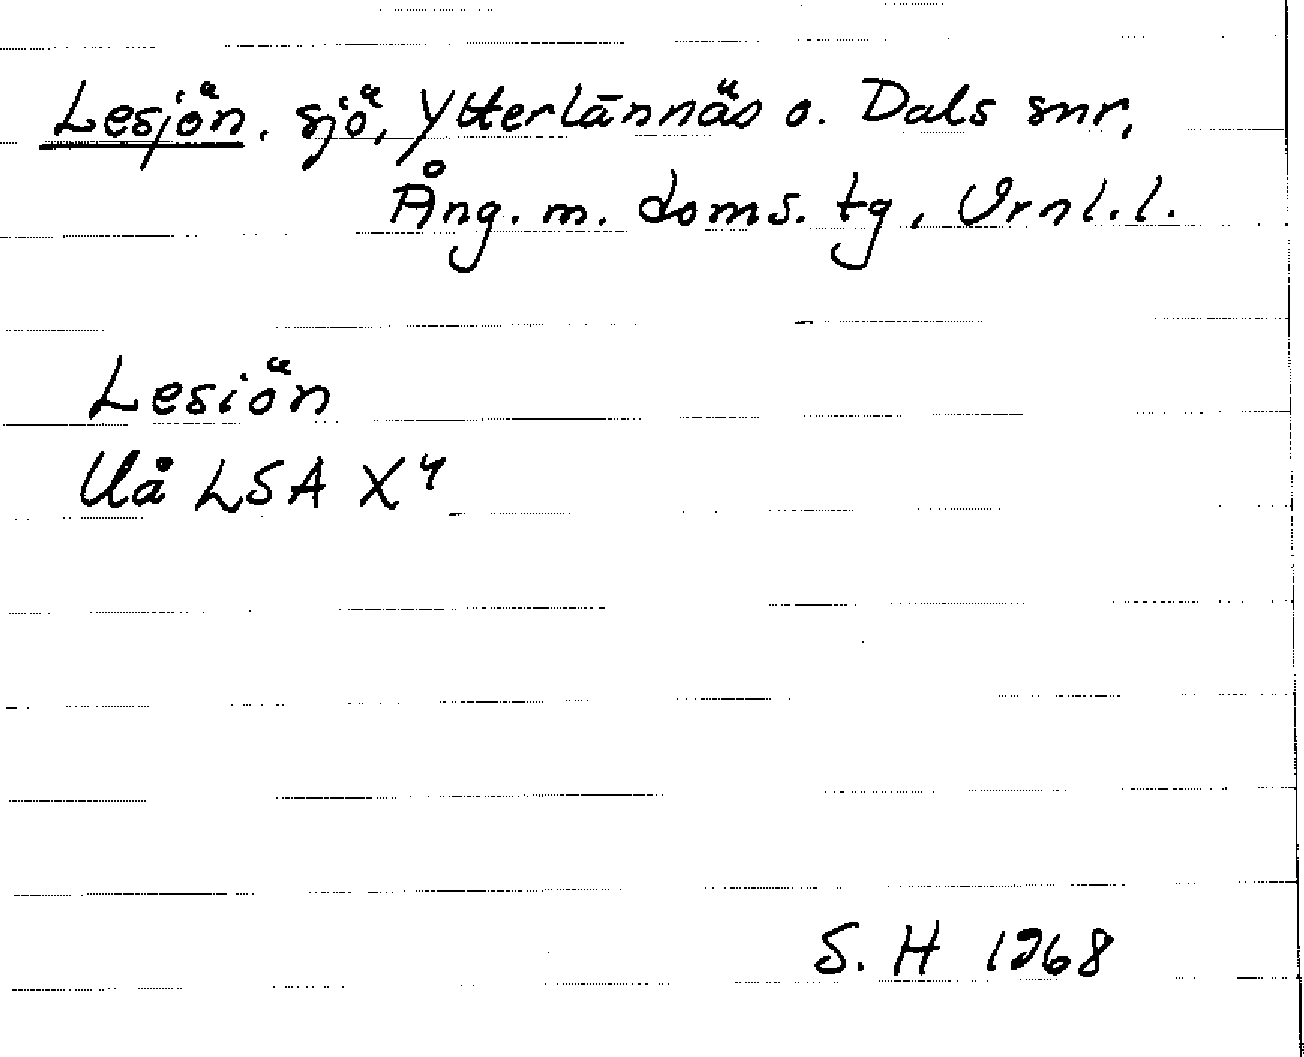 Lesjön, sjö, Ytterlännäs o. Dals snr,
Ång. m. doms. tg, Vrnl.l.
Lesiön
Uå LSA X4
S. H 1968